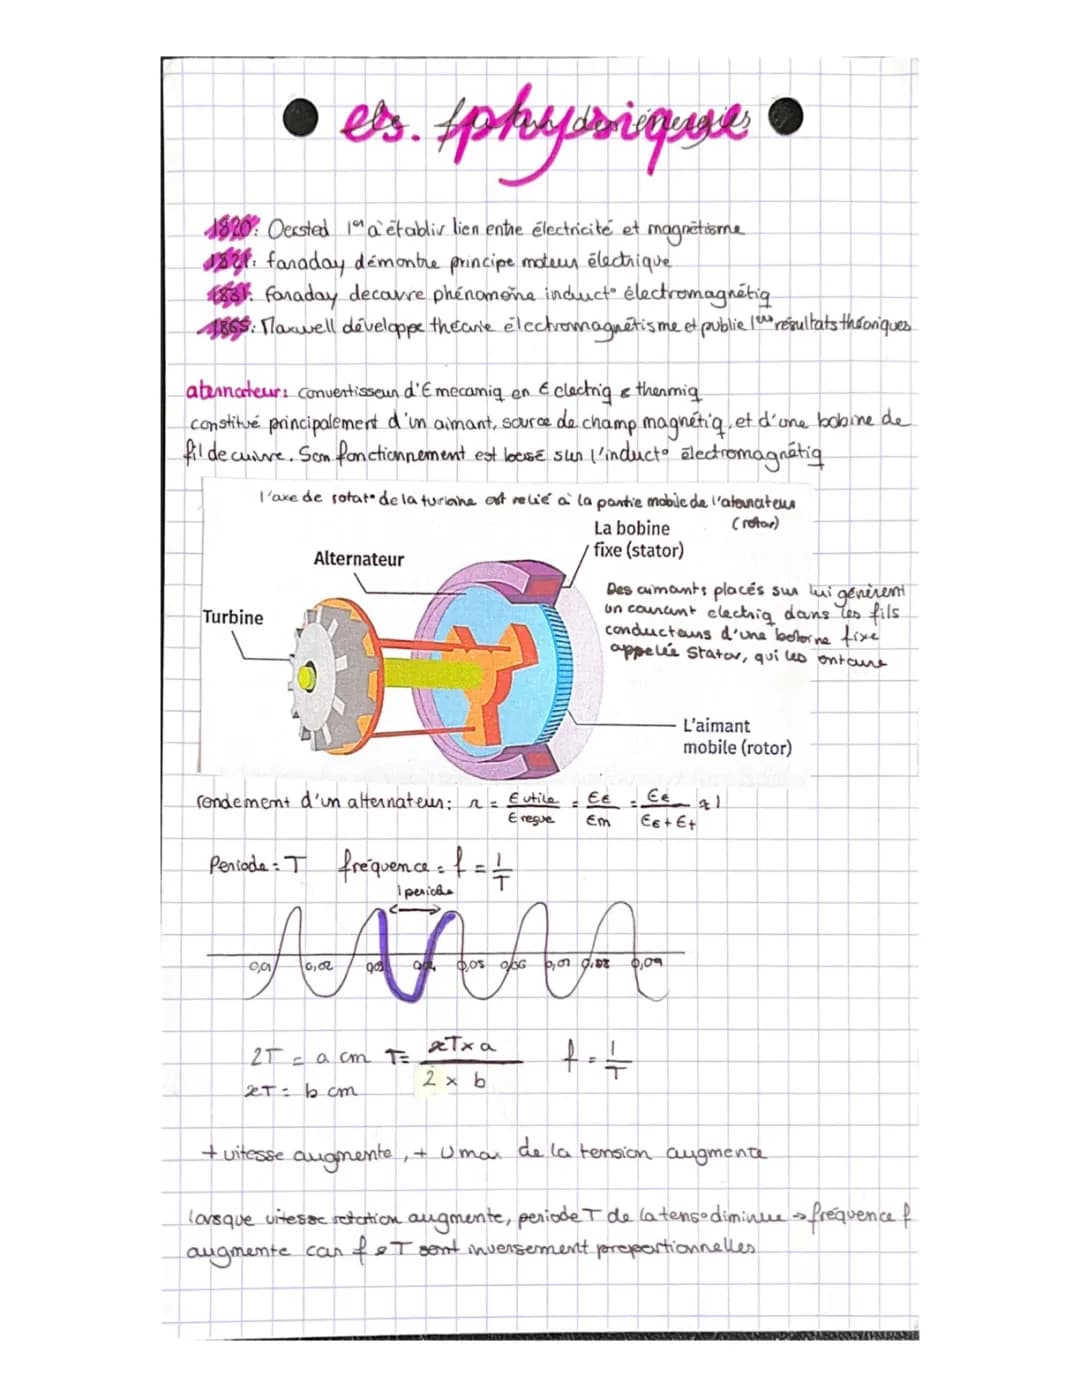 es. physique
1820: Oersted 1er à établir lien entre électricité et magnétisme
1821: faraday démontre principe moteur électrique
1831: faraday decouvre phénomène induct° électromagnétiq
1865: Maxwell développe théorie électromagnétisme et publie 1ers résultats théoriques
alternateur: convertisseur d'E mecaniq en E électriq & thermiq
constitué principalement d'un aimant, source de champ magnétiq, et d'une bobine de
fil de cuivre. Son fonctionnement est basé sur l'induct° électromagnétiq
l'axe de rotat° de la turbine est relié à la partie mobile de l'alternateur
(rotor)
La bobine
fixe (stator)
Alternateur
Turbine
Des aimants placés sur lui génèrent
un courant electriq dans les fils
conducteurs d'une bobine fixe
appelée Stator, qui les entoure
L'aimant
mobile (rotor)
rendement d'un alternateur: r = E utile / E reçue = Ee / Em = Ee / Ee + Et ≈ 1
Periode = T fréquence = f = 1/T
1 periode
0,01 0,02 0,03 0,04 0,05 0,06 0,07 0,08 0,09
2T = a cm T = xT x a / 2 x b f = 1/T
xT = b cm
+ vitesse augmente, + U max de la tension augmente
lorsque vitesse rotation augmente, periode T de la tens° diminue → fréquence f
augmente car f et T sont inversement proportionnelles